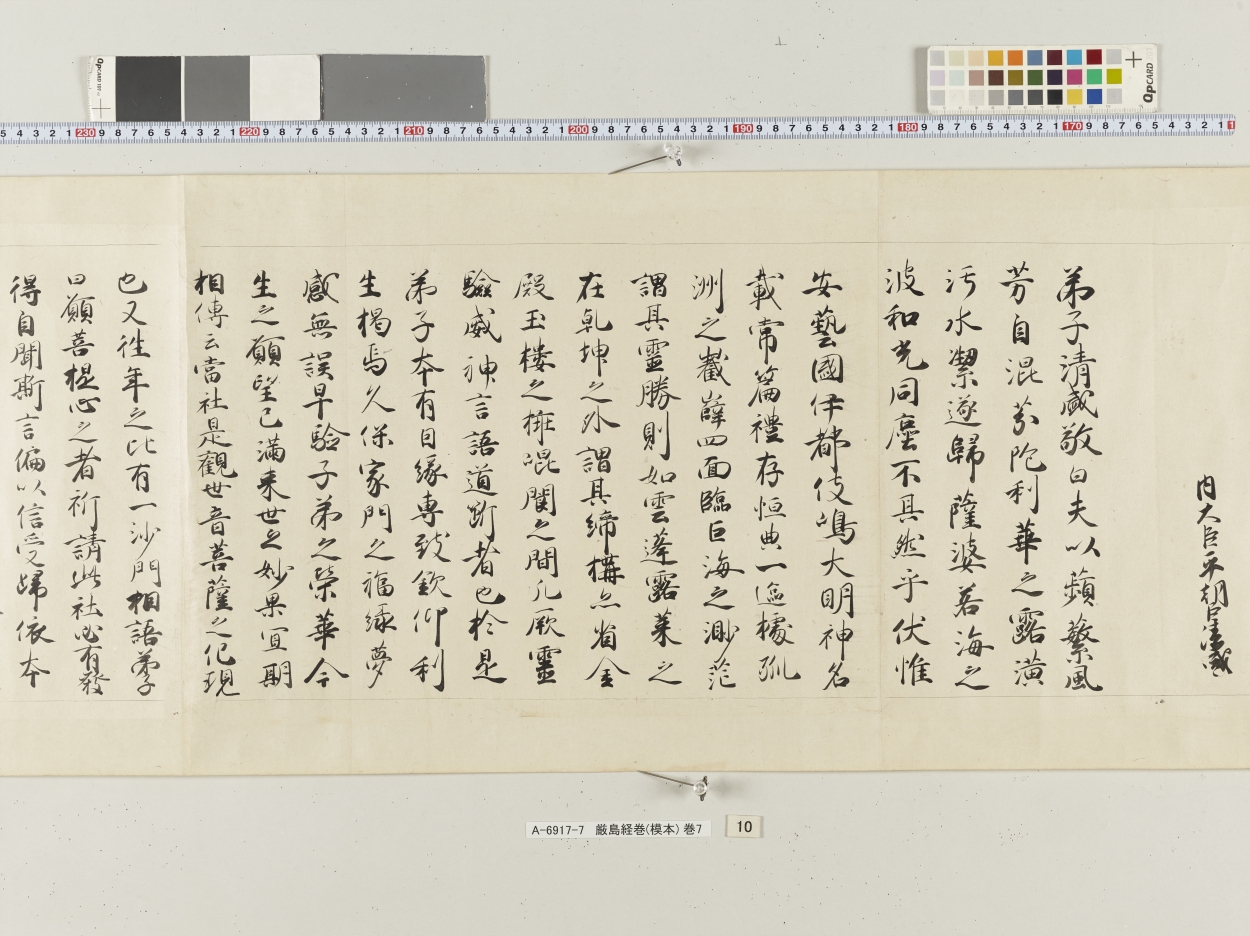 内大臣平朝臣清盛
弟子清盛敬白夫以蘋蘩風
芳自混芬陀利華之露潢
汙水潔遂歸薩婆若海之
波和光同塵不其然乎伏惟
安藝國伊都伎嶋大明神名
載常篇禮存恒典一區據孤
洲之巀嶭四面臨巨海之渺茫
謂其靈勝則如雲蓬露萊之
在乹坤之外謂其締構亦省金
殿玉樓之排崐閬之間凡厥靈
驗威神言語道斷者也於是
弟子本有因縁專致欽仰利
生掲焉久保家門之福縁夢
感無誤早驗子弟之榮華今
生之願望已満来世之妙果宜期
相傳云當社是觀世音菩薩之化現
也又往年之比有一沙門相語弟子
曰願菩提心之者祈請此社必有發
得自聞斯言偏以信受歸依本
A-6917-7 厳島経巻(模本) 巻7
10
QPCARD 101
QPCARD
5 4 3 2 1 230 9 8 7 6 5 4 3 2 1 220 9 8 7 6 5 4 3 2 1 210 9 8 7 6 5 4 3 2 1 200 9 8 7 6 5 4 3 2 1 190 9 8 7 6 5 4 3 2 1 180 9 8 7 6 5 4 3 2 1 170 9 8 7 6 5 4 3 2 1